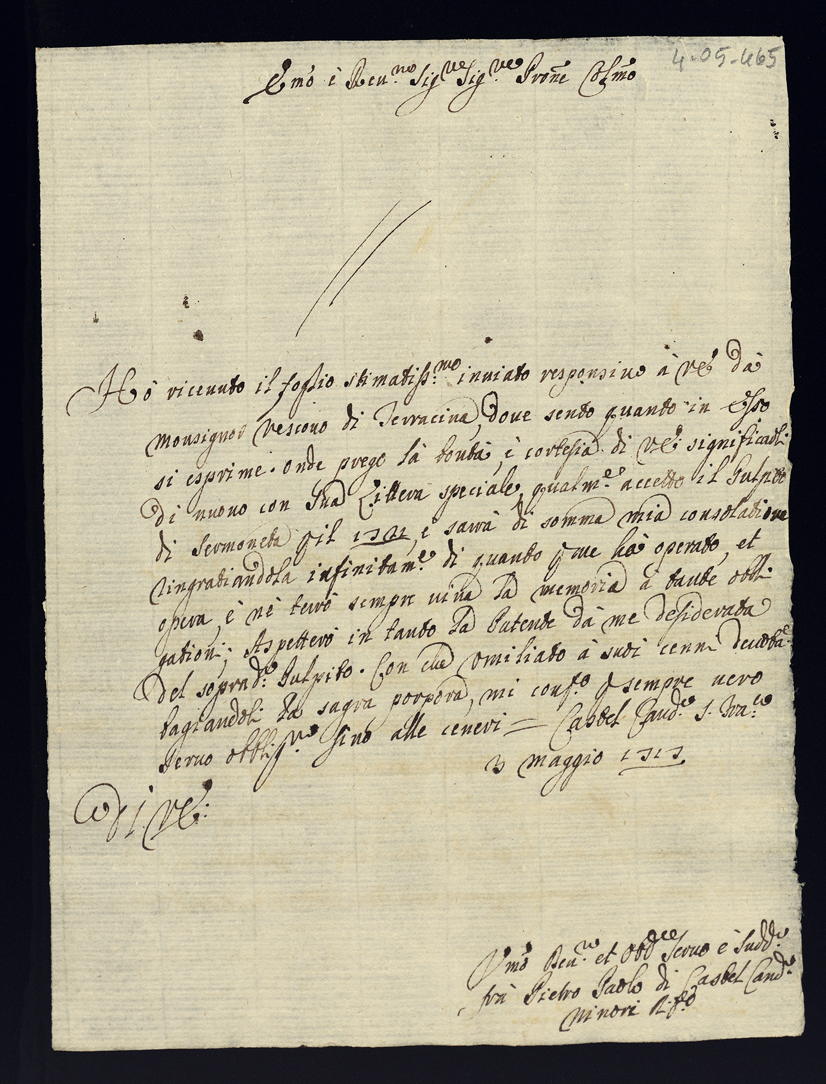 4-05-465
Emo è Reu.mo Sig.re Sig.re Prone Colmo
Hò riceuuto il foglio stimatiss.mo inuiato responsiuo à V.E. dà
monsignor vescouo di Terracina, doue sento quanto in esso
si esprime. onde prego la bontà, è cortesia di V.E. significarli
di nuouo con Sua Littera speciale, qualm.e accetto il Pulpito
di Sermoneta p il è sarrà di somma mia consolatione
ringratiandola infinitam.e di quanto p me hà operato, et
opera, è nè terrò sempre uiua la memoria à tante obli-
gationi; Aspetterò in tanto la Patente dà me desiderata
del soprad.o Pulpito. Con che umiliato à suoi cenni
bagiandoli la sagra porpora, mi conf.o p sempre uero
seruo obblig.mo sino alle ceneri = Castel Gand.o S. Fra.co
3 maggio
di V.E.
Vmo Reu.mo et obd.e Seruo è Sudd.o
frà Pietro Paolo di Castel Gand.o
Minori Rif.o